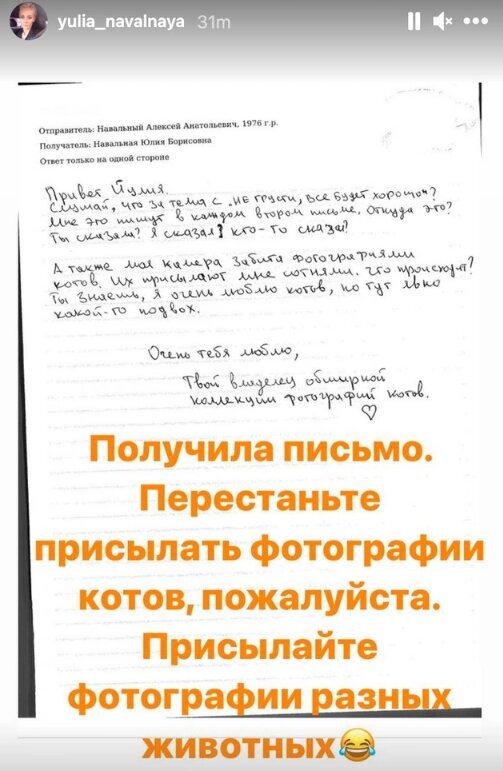 yulia_navalnaya 31m
Отправитель: Навальный Алексей Анатольевич, 1976 г.р.
Получатель: Навальная Юлия Борисовна
Ответ только на одной стороне
Привет Йулия.
Слушай, что за тема с "НЕ грусти, все будет хорошо"?
Мне это пишут в каждом втором письме. Откуда это?
Ты сказала? Я сказал? кто-то сказал?
А также моя камера забита фотографиями
котов. Их присылают мне сотнями. Что происходит?
Ты знаешь, я очень люблю котов, но тут явно
какой-то подвох.
Очень тебя люблю,
Твой владелец обширной
коллекции фотографий котов.
♡
Получила письмо.
Перестаньте
присылать фотографии
котов, пожалуйста.
Присылайте
фотографии разных
животных😂